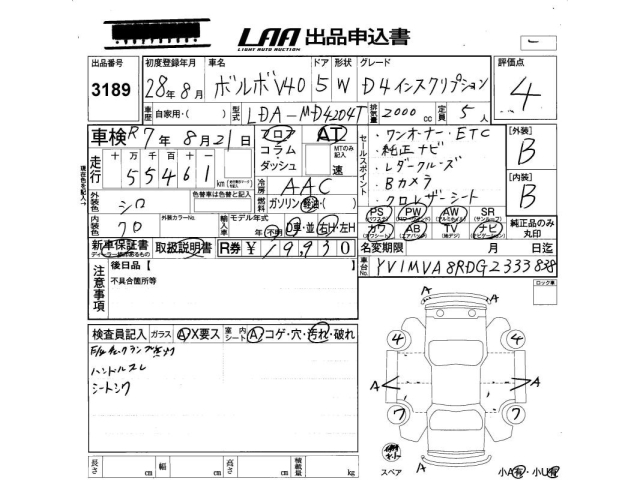 LAA 出品申込書
LIGHT AUTO AUCTION
出品番号 初度登録年月 車名 ドア 形状 グレード 評価点
3189 28年8月 ボルボV40 5 W D4インスクリプション 4
車歴 自家用・( ) 型式 LDA-MD4204T 排気量 2000 cc 定員 5人
車検 R7年8月21日 フロア コラム・ダッシュ AT MTのみ記入 速
セールスポイント
・ワンオーナー・ETC
・純正ナビ
・レダクルーズ
・Bカメラ
・クロレザーシート
[外装] B
[内装] B
現在色を記入→
走行 十万 万 千 百 十 一
55461 km
冷房 AAC
外装色 シロ 色替車は色替と記入 燃料 ガソリン・軽油・( )
PS PW AW SR
カワ AB TV ナビ
純正品のみ丸印
内装色 クロ 外装カラーNo. 輸入車 モデル年式 年(不明) D車・並 右H・左H
新車保証書 取扱説明書 R券 ¥19,930 名変期限 月 日迄
ディーラー様印あるもの
車台No. YV1MVA8RDG2333838
注意事項 後日品【
不具合箇所等
ロック車
検査員記入 ガラス A X要ス 室内シート A コゲ・穴・汚れ・破れ
ハンドルスレ
シートシワ
A A
4 4
A A
7 7
A
スペア
小A有・小U有
長さ cm 幅 cm 高さ cm 積載量 kg